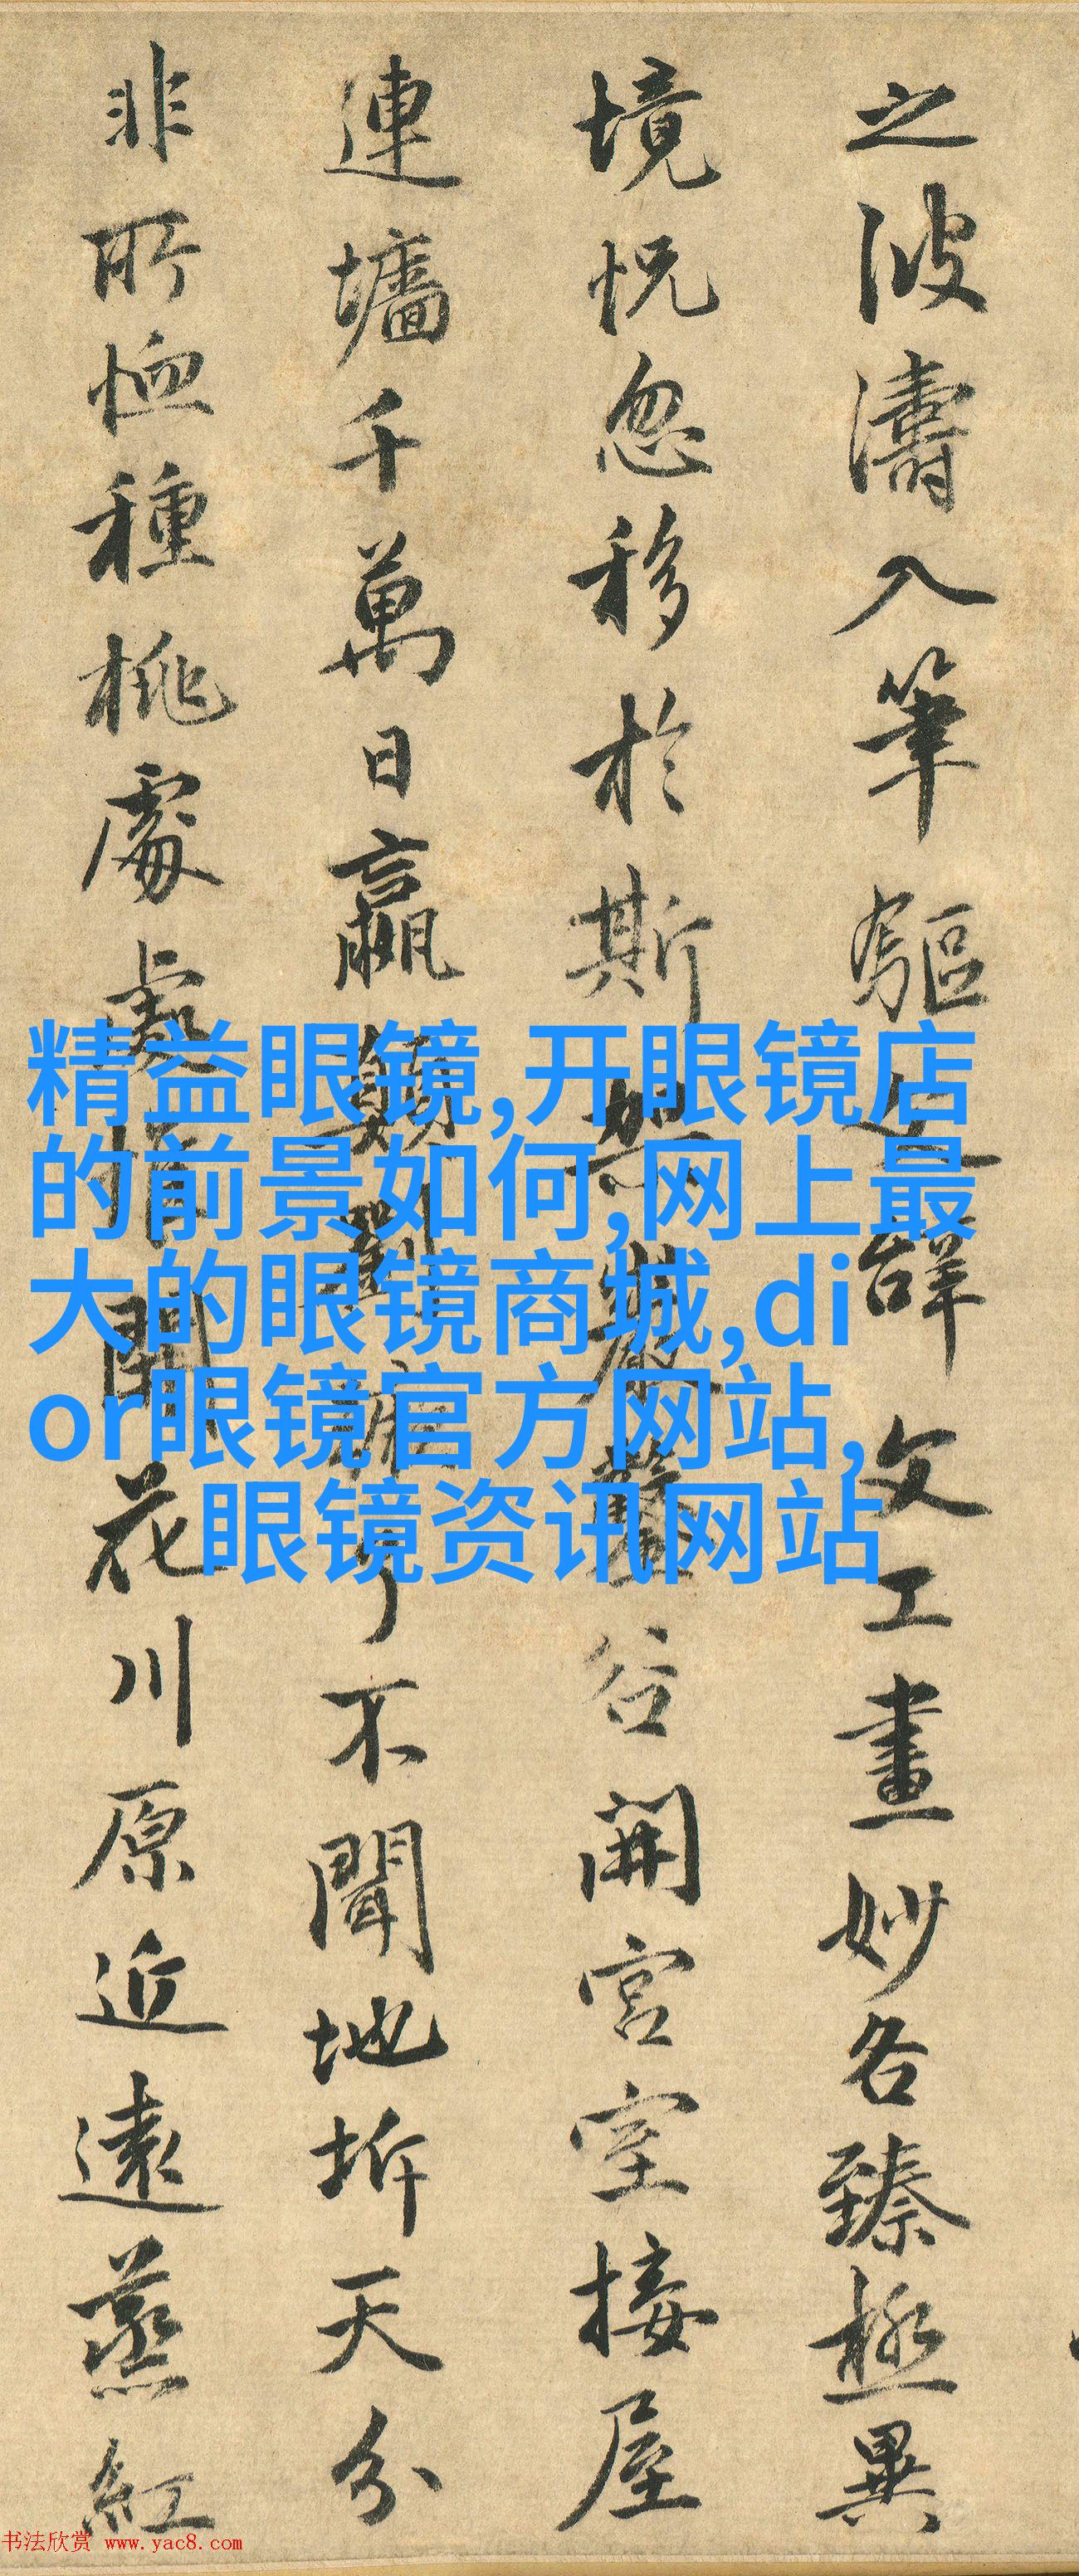 之波濤入筆驅辭文工畫妙各臻極異
境恍忽移於斯架巖鑿谷開宮室接屋
連墻千萬日嬴顛劉蹶了不聞地坼天分
非所恤種桃處處惟開花川原近遠蒸紅
精益眼镜,开眼镜店
的前景如何,网上最
大的眼镜商城,di
or眼镜官方网站,
眼镜资讯网站
书法欣赏 www.yac8.com